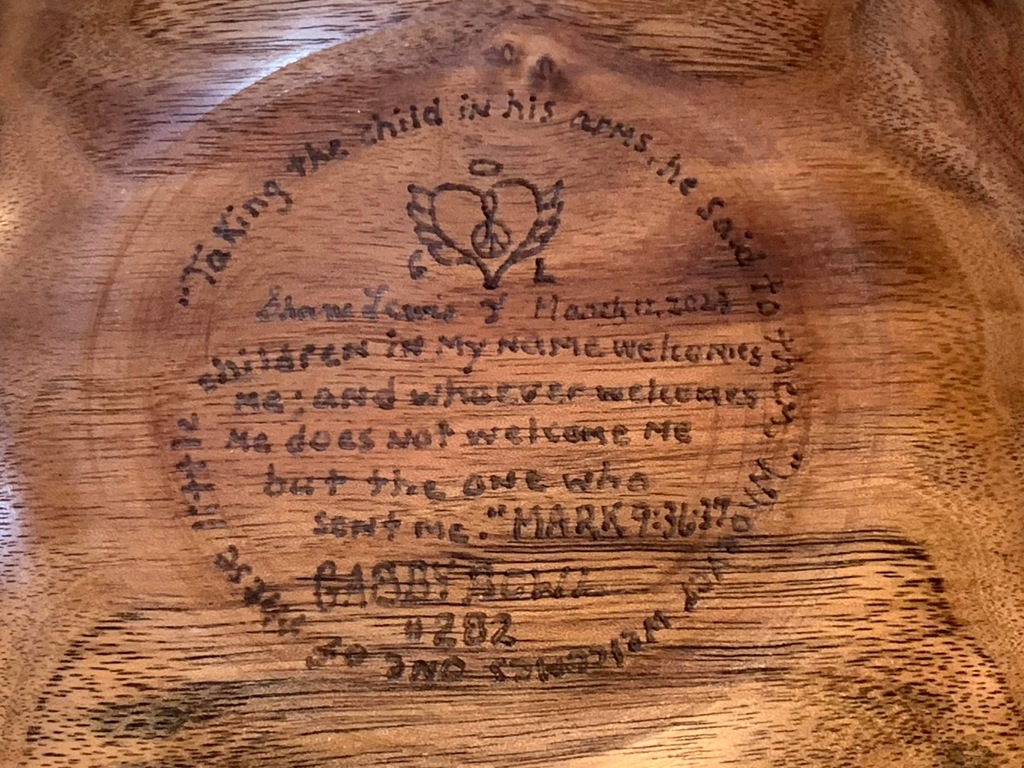 "Taking the child in his arms, he said to them, "Whoever welcomes one of these little
G L
Shane Lewis March 17, 202
children in my name welcomes
me; and whoever welcomes
me does not welcome me
but the one who
sent me." MARK 9:36:37
GABBY BOWL
#282